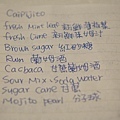 Caipijito
Fresh Mint leaf 新鮮薄荷葉
Fresh Cane 新鮮甘蔗汁
Brown sugar 紅糖
Rum 蘭姆酒
Cachaca 甘蔗蘭姆酒
Sour Mix + Soda water
Sugar Cane 甘蔗
Mojito pearl 分子球